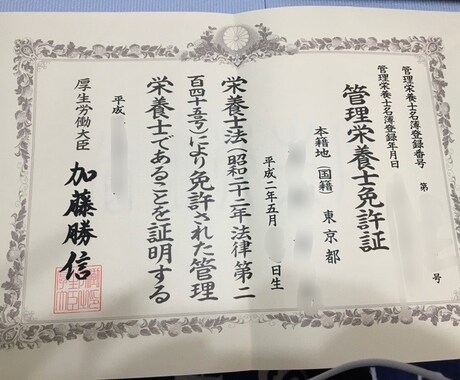 管理栄養士名簿登録番号 第 号
管理栄養士名簿登録年月日
管理栄養士免許証
本籍地(国籍) 東京都
平成二年五月 日生
栄養士法(昭和二十二年法律第二
百四十五号)により免許された管理
栄養士であることを証明する
平成
厚生労働大臣 加藤勝信